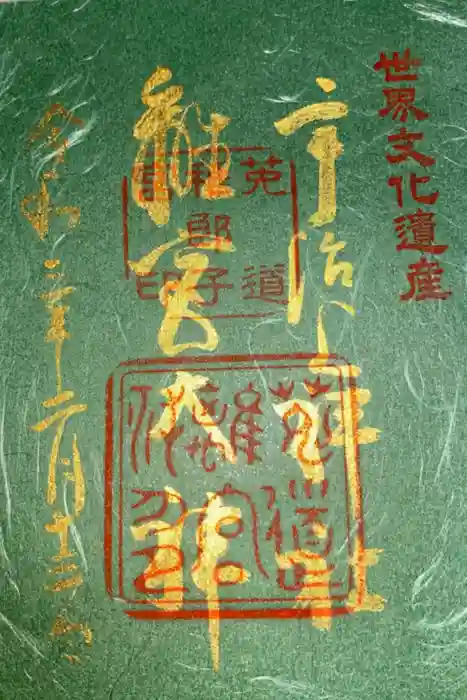 世界文化遺産
宇治上神社
離宮大神
令和三年二月十三日
菟道
稚郎子
印